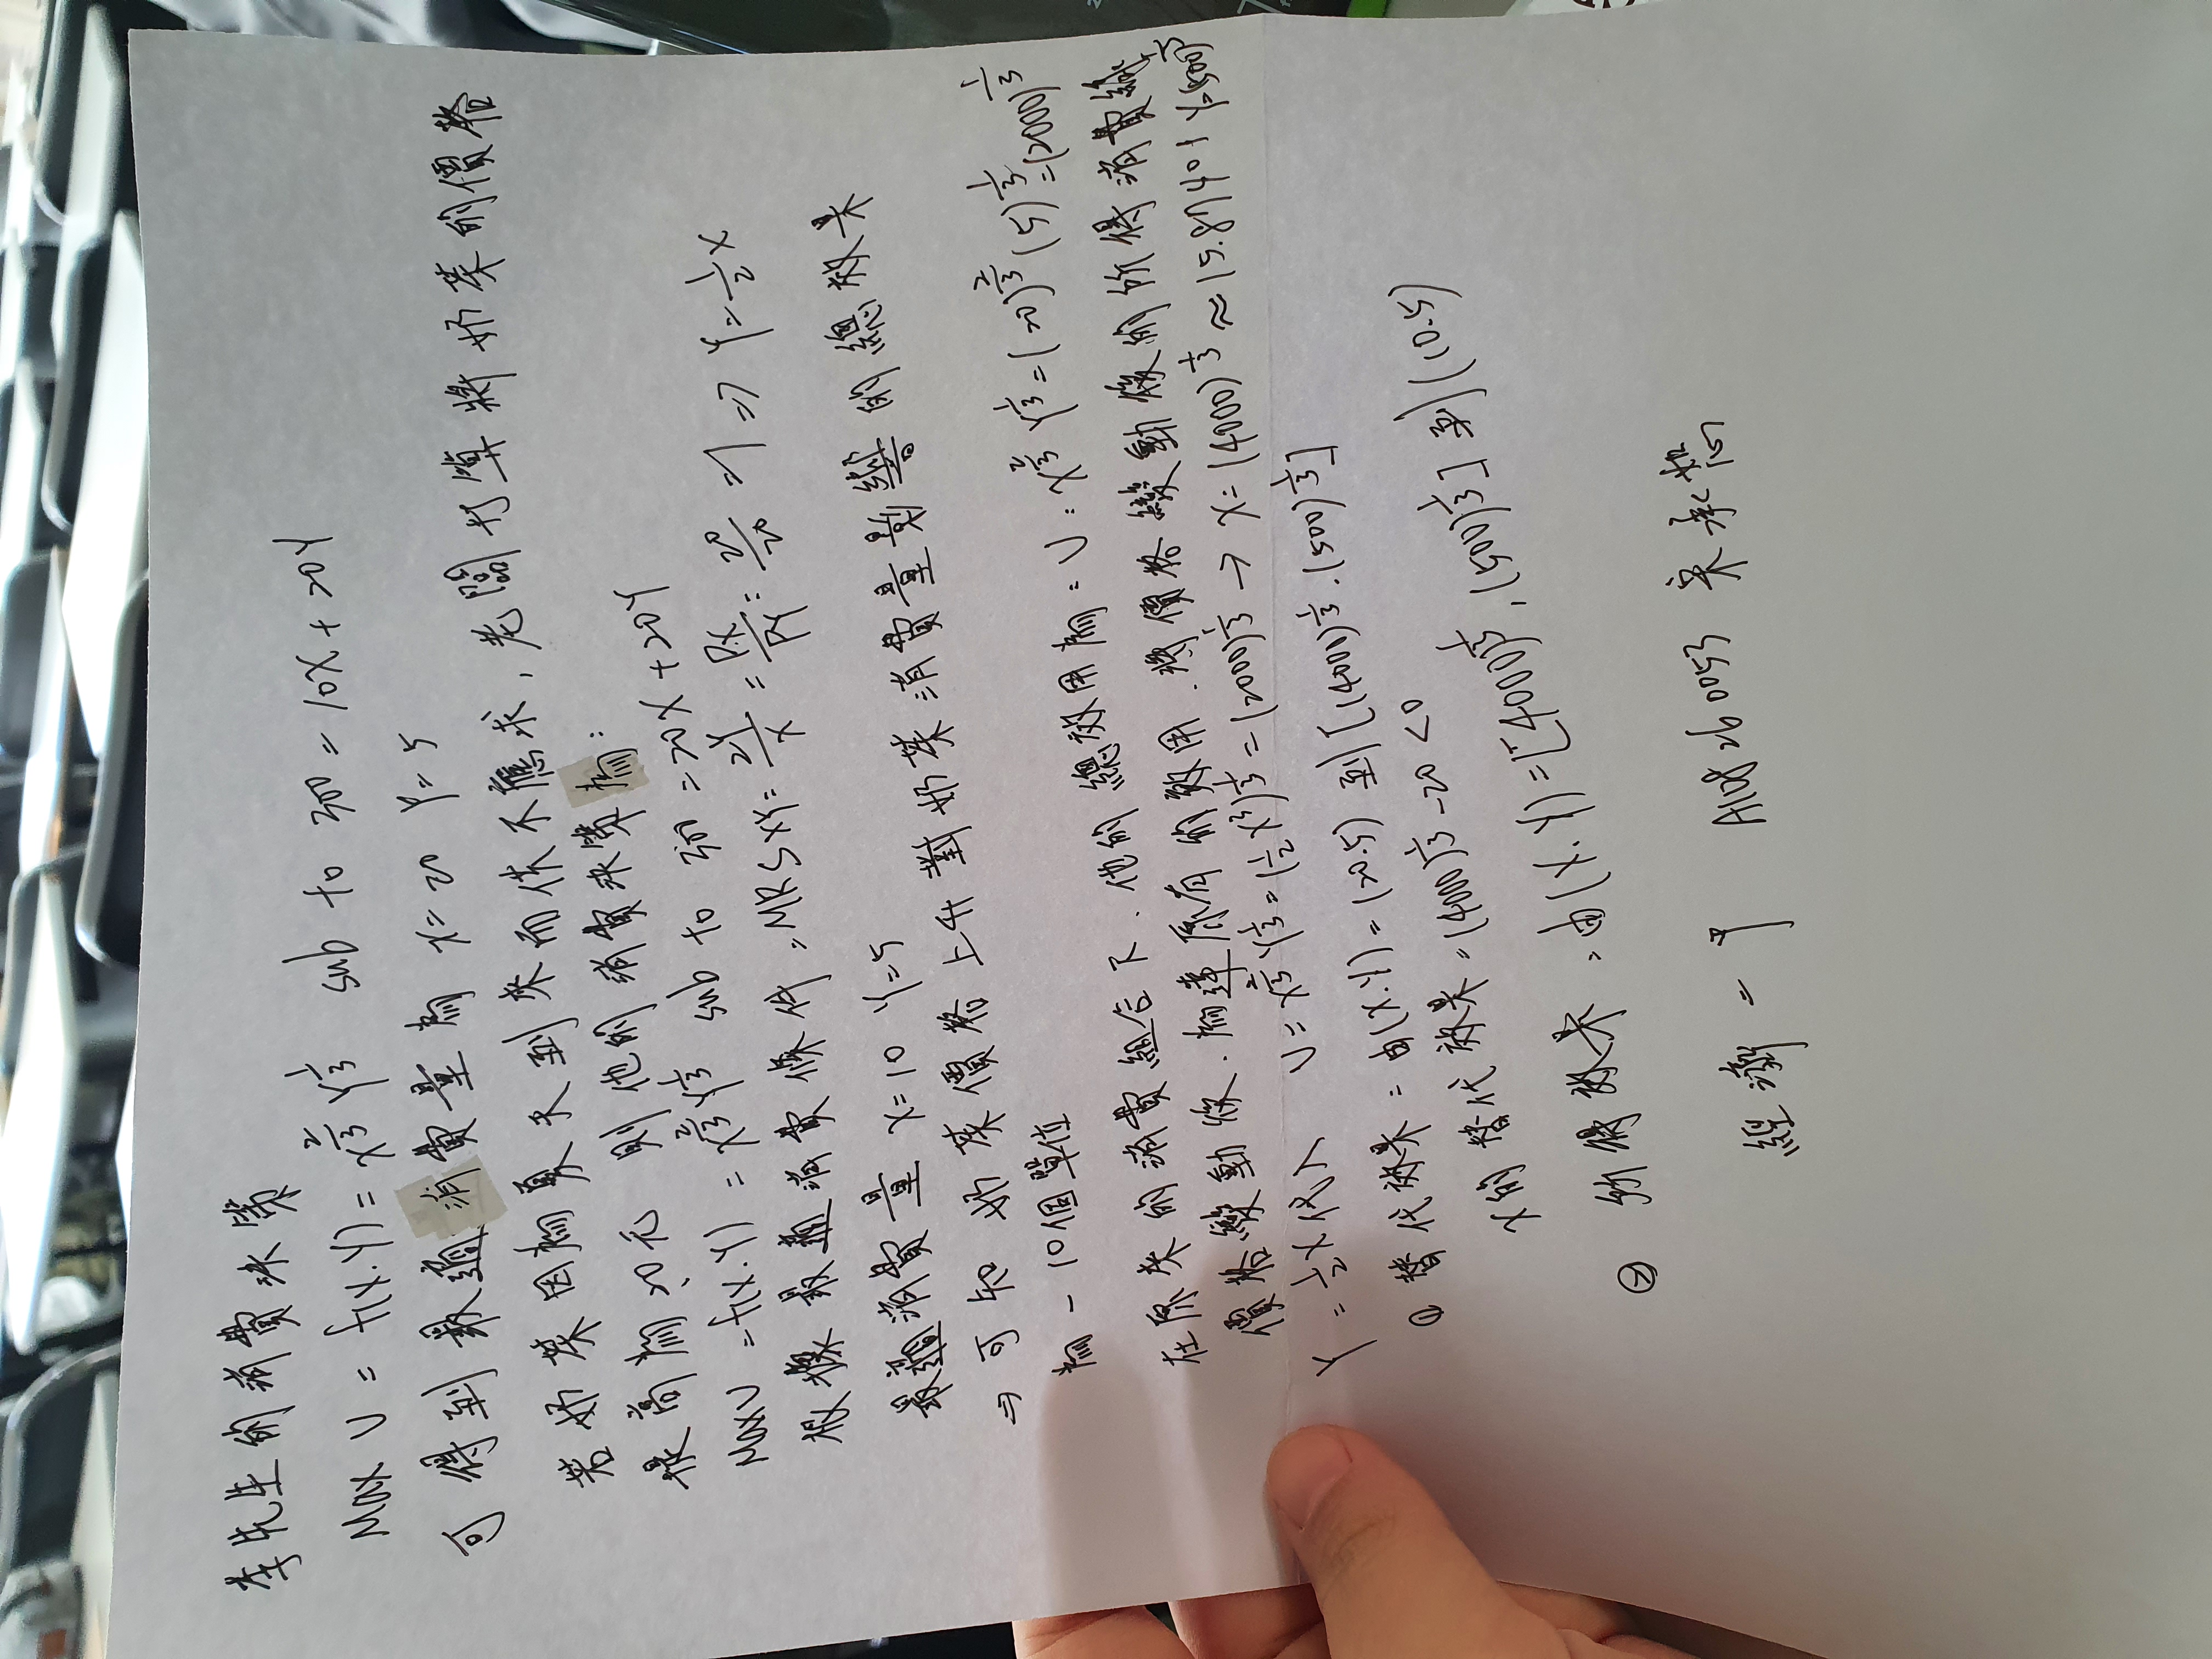 李先生的消費決策
Max U = f(X.Y) = X^{2/3} Y^{1/3} sub to 300 = 10X + 20Y
可得到最適消費量為 X=20 Y=5
若奶茶因為夏天到來而供不應求,老闆打算將奶茶的價格
提高為20元 則他的消費決策為:
Max U = f(X.Y) = X^{2/3} Y^{1/3} sub to 300 = 20X + 20Y
根據最適消費條件:MRSXY = 2Y/X = PX/PY = 20/20 = 1 ⇒ Y = 1/2 X
最適消費量 X=10 Y=5
⇒ 可知奶茶價格上升對奶茶消費量影響的總效果
為 -10個單位
在原來的消費組合下.他的總效用為:U = X^{2/3} Y^{1/3} = (20)^{2/3} (5)^{1/3} = (2000)^{1/3}
價格變動後.為達原有的效用.將價格變動後的所得消費線
Y = 1/2 X 代入 U = X^{2/3} Y^{1/3} = (1/2 X^3)^{1/3} = (2000)^{1/3} → X = (4000)^{1/3} ≈ 15.87401 Y=(500)^{1/3}
① 替代效果 = 由(X.Y) = (20.5) 到 [(4000)^{1/3}.(500)^{1/3}]
X的替代效果 = (4000)^{1/3} - 20 < 0
② 所得效果:由(X.Y) = [(4000)^{1/3}, (500)^{1/3}] 到 (10.5)
經濟一 A108260053 宋承